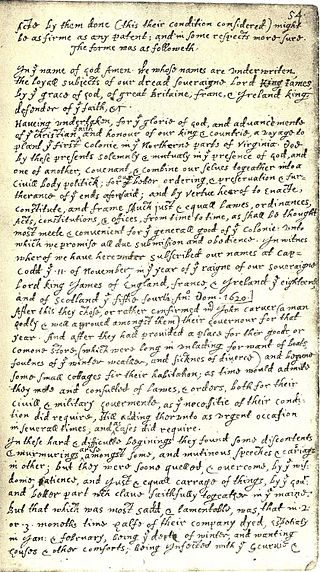 54
by them done (this their condition considered) might
be as firme as any patent; and in some respects more sure.
The forme was as followeth.
In yᵉ name of god Amen. we whose names are underwriten,
the loyall subjects of our dread soveraigne Lord King James
by yᵉ grace of god, of great Britaine, franc, & Ireland king,
defender of yᵉ faith, &c
Haveing undertaken, for yᵉ glorie of god, and advancemente
of yᵉ christian faith and honour of our king & countrie, a voyage to
plant yᵉ first colonie in yᵉ Northerne parts of Virginia. doe
by these presents solemnly & mutualy in yᵉ presence of god, and
one of another, covenant, & combine our selves togeather into a
civill body politick; for our better ordering, & preservation & fur=
therance of yᵉ ends aforesaid; and by vertue hearof to enacte,
constitute, and frame such just & equall lawes, ordinances,
Acts, constitutions, & offices, from time to time, as shall be thought
most meete & convenient for yᵉ generall good of yᵉ Colonie: unto
which we promise all due submission and obedience. In witnes
wherof we have hereunder subscribed our names at Cap=
Codd yᵉ ·11· of November, in yᵉ year of yᵉ raigne of our soveraigne
Lord king James of England, france & Ireland yᵉ eighteenth
and of Scotland yᵉ fiftie fourth. Ano: Dom. 1620.
After this they chose, or rather confirmed mr John Carver (a man
godly & well approved amongst them) their Governour for that
year. And after they had provided a place for their goods, or
comone store, (which were long in unlading for want of boats,
foulnes of yᵉ winter weather, and sicknes of diverce) and begune
some small cottages for their habitation; as time would admitte
they mete and consulted of lawes, & orders, both for their
civill & military Govermente, as yᵉ necessitie of their condi=
tion did require, still adding therunto as urgent occasion
in severall times, and as cases did require.
In these hard & difficulte beginings they found some discontents
& murmurings arise amongst some, and mutinous speeches & carriags
in other; but they were soone quelled, & overcome, by yᵉ wis=
dome, patience, and just & equall carrage of things, by yᵉ Govr
and better part wch clave faithfully togeather in yᵉ maine.
But that which was most sadd, & lamentable, was, that in ·2·
or ·3· moneths time halfe of their company dyed, espetialy
in Jan: & february, being yᵉ depth of winter, and wanting
houses & other comforts; being Infected with yᵉ Scurvie &